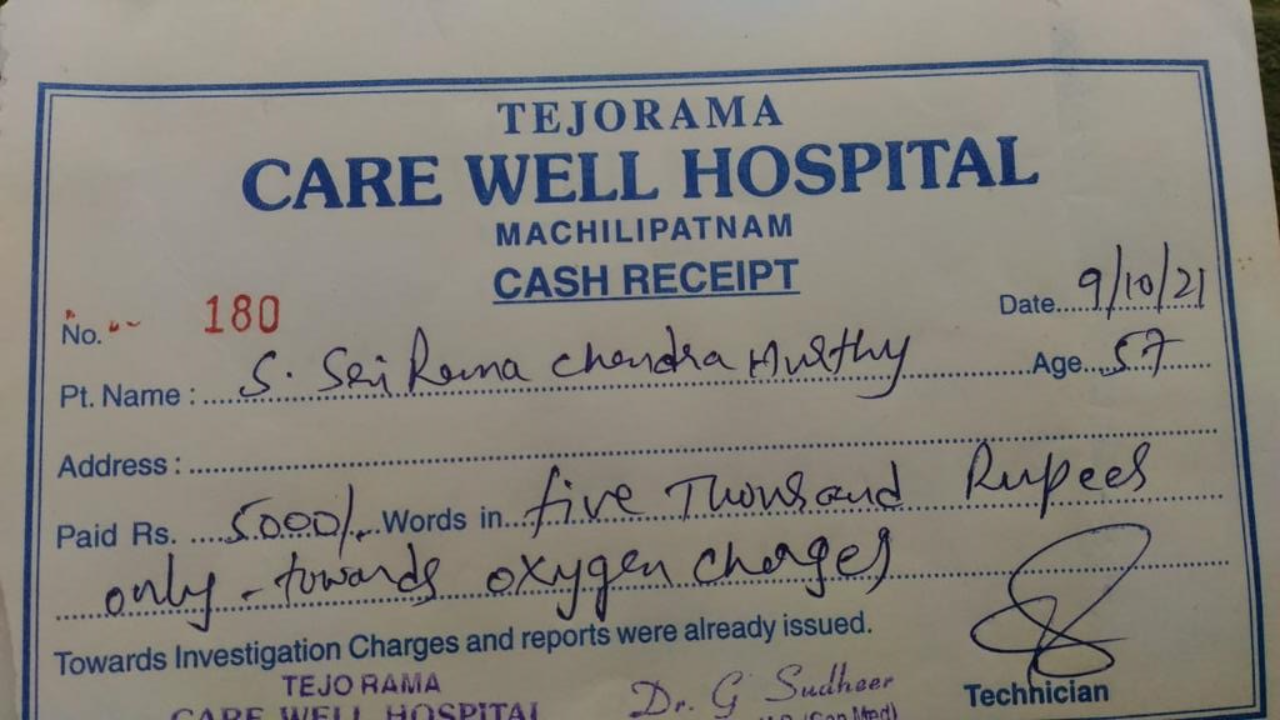 TEJORAMA
CARE WELL HOSPITAL
MACHILIPATNAM
CASH RECEIPT
No. 180
Date 9/10/21
Pt. Name : S. Sri Rama Chandra Murthy Age 57
Address :
Paid Rs. 5000/- Words in five Thousand Rupees
only - towards oxygen charges
Towards Investigation Charges and reports were already issued.
TEJO RAMA
CARE WELL HOSPITAL
Dr. G Sudheer
Technician